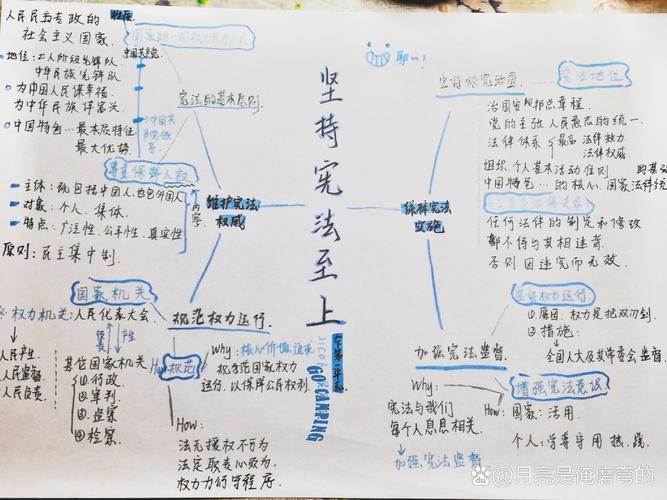 坚持宪法至上
人民民主专政的
性质
社会主义国家.
地位:工人阶级先锋队
中华民族先锋队
为中国人民谋幸福
为中华民族谋复兴
中国特色…最本质特征
最大优势.
中国共产党
宪法的基本原则
尊重保障人权
主体:既包括中国人,也包外国人
对象:个人、集体.
特点:广泛性、公平性、真实性
原则:民主集中制.
内容
维护宪法
权威
国家机关
权力机关:人民代表大会
其他国家机关
①行政
②审判
③监察
④检察.
人民产生
人民监督
人民负责
规范权力运行.
规范
Why:核心价值追求
规范国家权力
运行,以保障公民权利
How:
法无授权不可为
法定职责必须为.
权力力行守程序
耶~!
坚持依宪治国.
宪法地位
治国安邦总章程.
党的主张人民意志的统一.
法律体系
最高
法律效力
法律权威
组织、个人基本活动准则
中国特色…的核心、国家法律统
任何法律的制定和修改
都不得与其相违背.
否则因违宪而无效.
保障宪法
实施
监督权力运行.
①原因:权力是把双刃剑.
②措施:
全国人大及其常委会监督
加强宪法监督.
Why:
宪法与我们
每个人息息相关.
加强宪法监督
增强宪法意识
How:
国家:活用
个人:学尊守用 热、践
GO CAMPING
@月亮是俺磨弯的